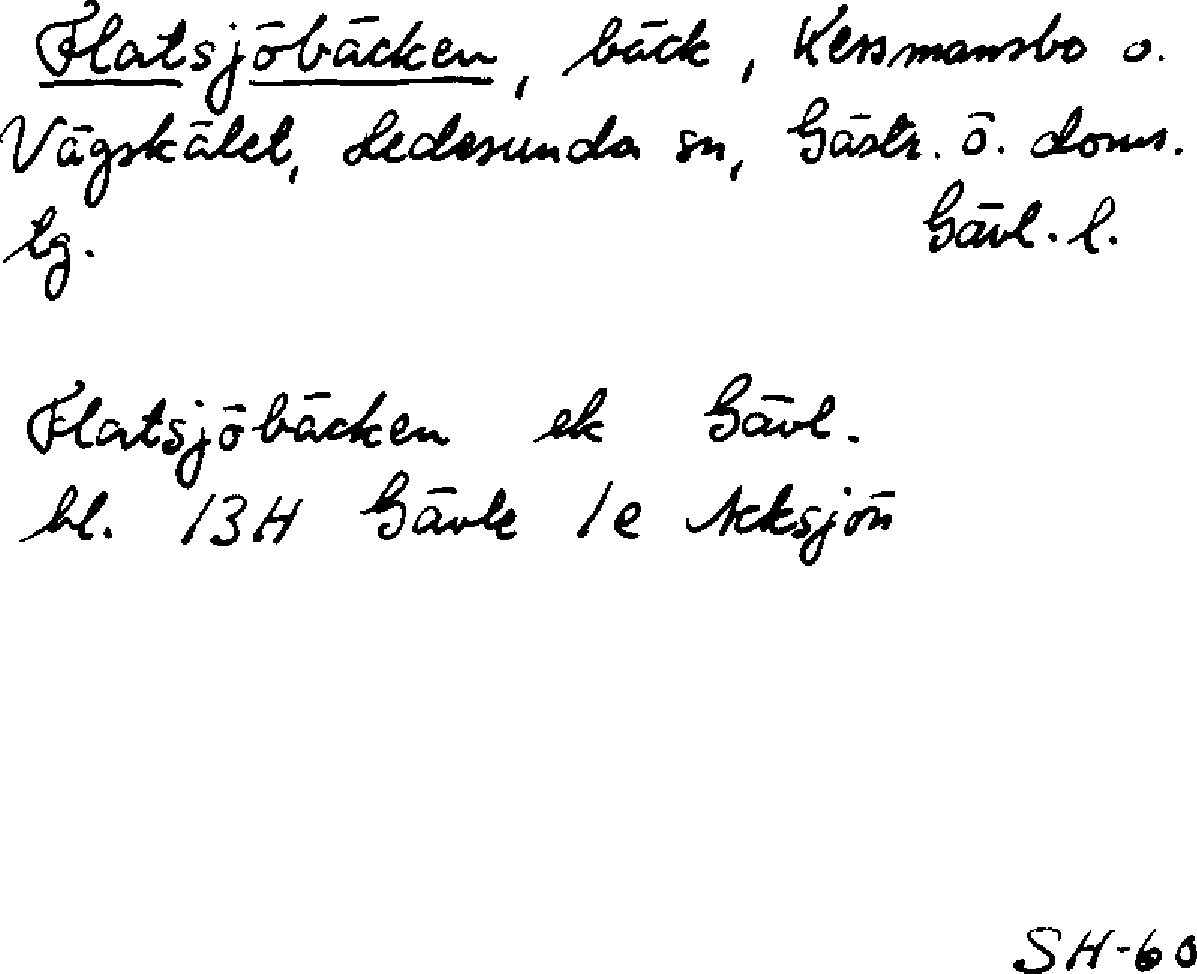 Flatsjöbäcken, bäck, Kessmansbo o.
Vägskälet, Hedesunda sn, Gästr. ö. doms.
tg. Gävl. l.
Flatsjöbäcken ek Gävl.
bl. 13H Gävle 1e Acksjön
SH-60